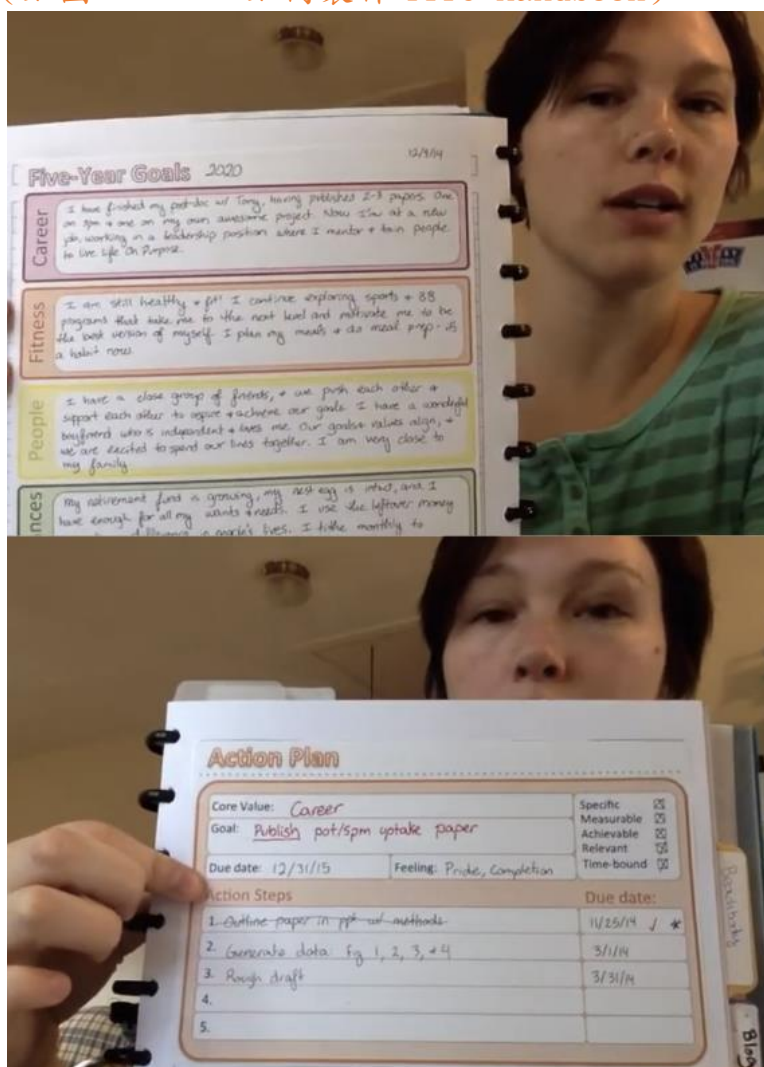 Handbook)
12/9/14
Five-Year Goals 2020
Career
I have finished my post-doc w/ Tony, having published 2-3 papers. One
on spm + one on my own awesome project. Now I'm at a new
job, working in a leadership position where I mentor + train people
to live Life On Purpose.
Fitness
I am still healthy + fit! I continue exploring sports + BB
programs that take me to the next level and motivate me to be
the best version of myself. I plan my meals + do meal prep - is
a habit now.
People
I have a close group of friends, + we push each other +
support each other to aspire + achieve our goals. I have a wonderful
boyfriend who is independent + loves me. Our goals + values align, +
we are excited to spend our lives together. I am very close to
my family.
nces
My retirement fund is growing, my nest egg is intact, and I
have enough for all my wants + needs. I use the leftover money
in people's lives. I tithe monthly to
Action Plan
Core Value: Career
Goal: Publish pot/spm uptake paper
Specific
Measurable
Achievable
Relevant
Time-bound
Due date: 12/31/15 Feeling: Pride, Completion
Action Steps Due date:
1. Outline paper in ppt w/ methods 11/25/14
2. Generate data: fig 1, 2, 3, + 4 3/1/14
3. Rough draft 3/31/14
4.
5.
Blog